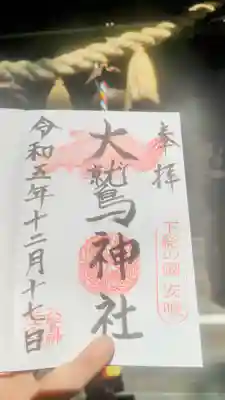 奉拝
下総の國 安喰
大鷲神社
令和五年十二月十七日